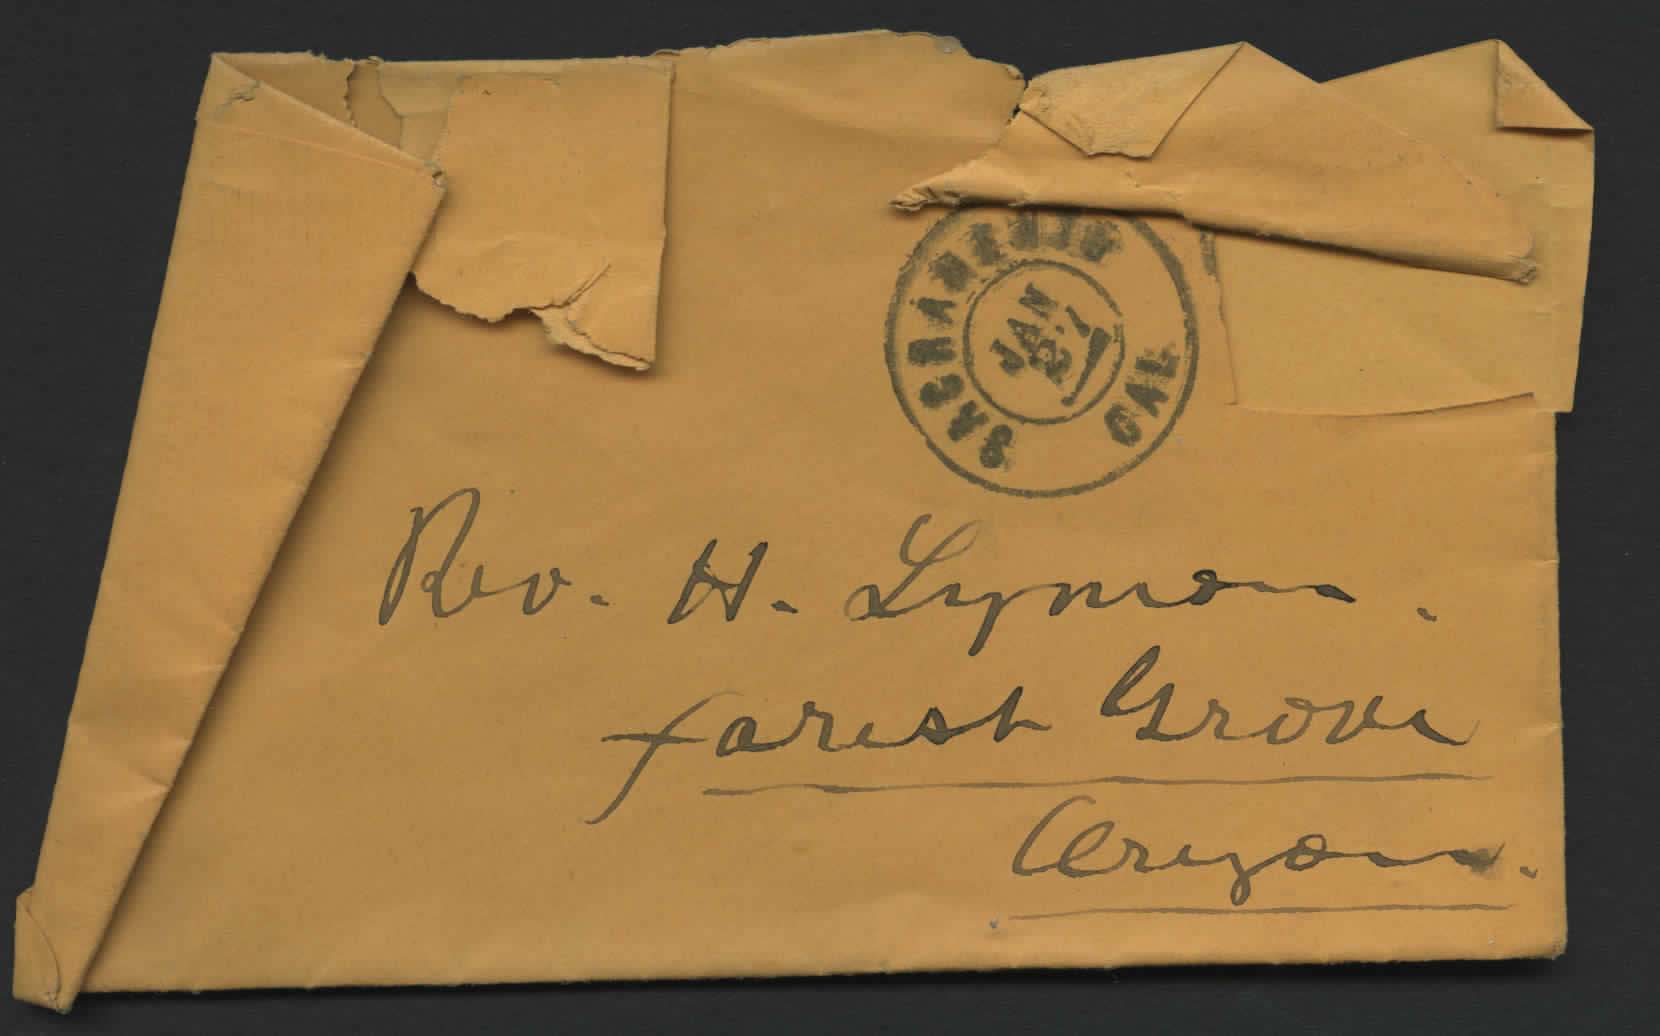 SACRAMENTO CAL.
JAN
Rev. H. Lyman.
Forest Grove
Oregon.